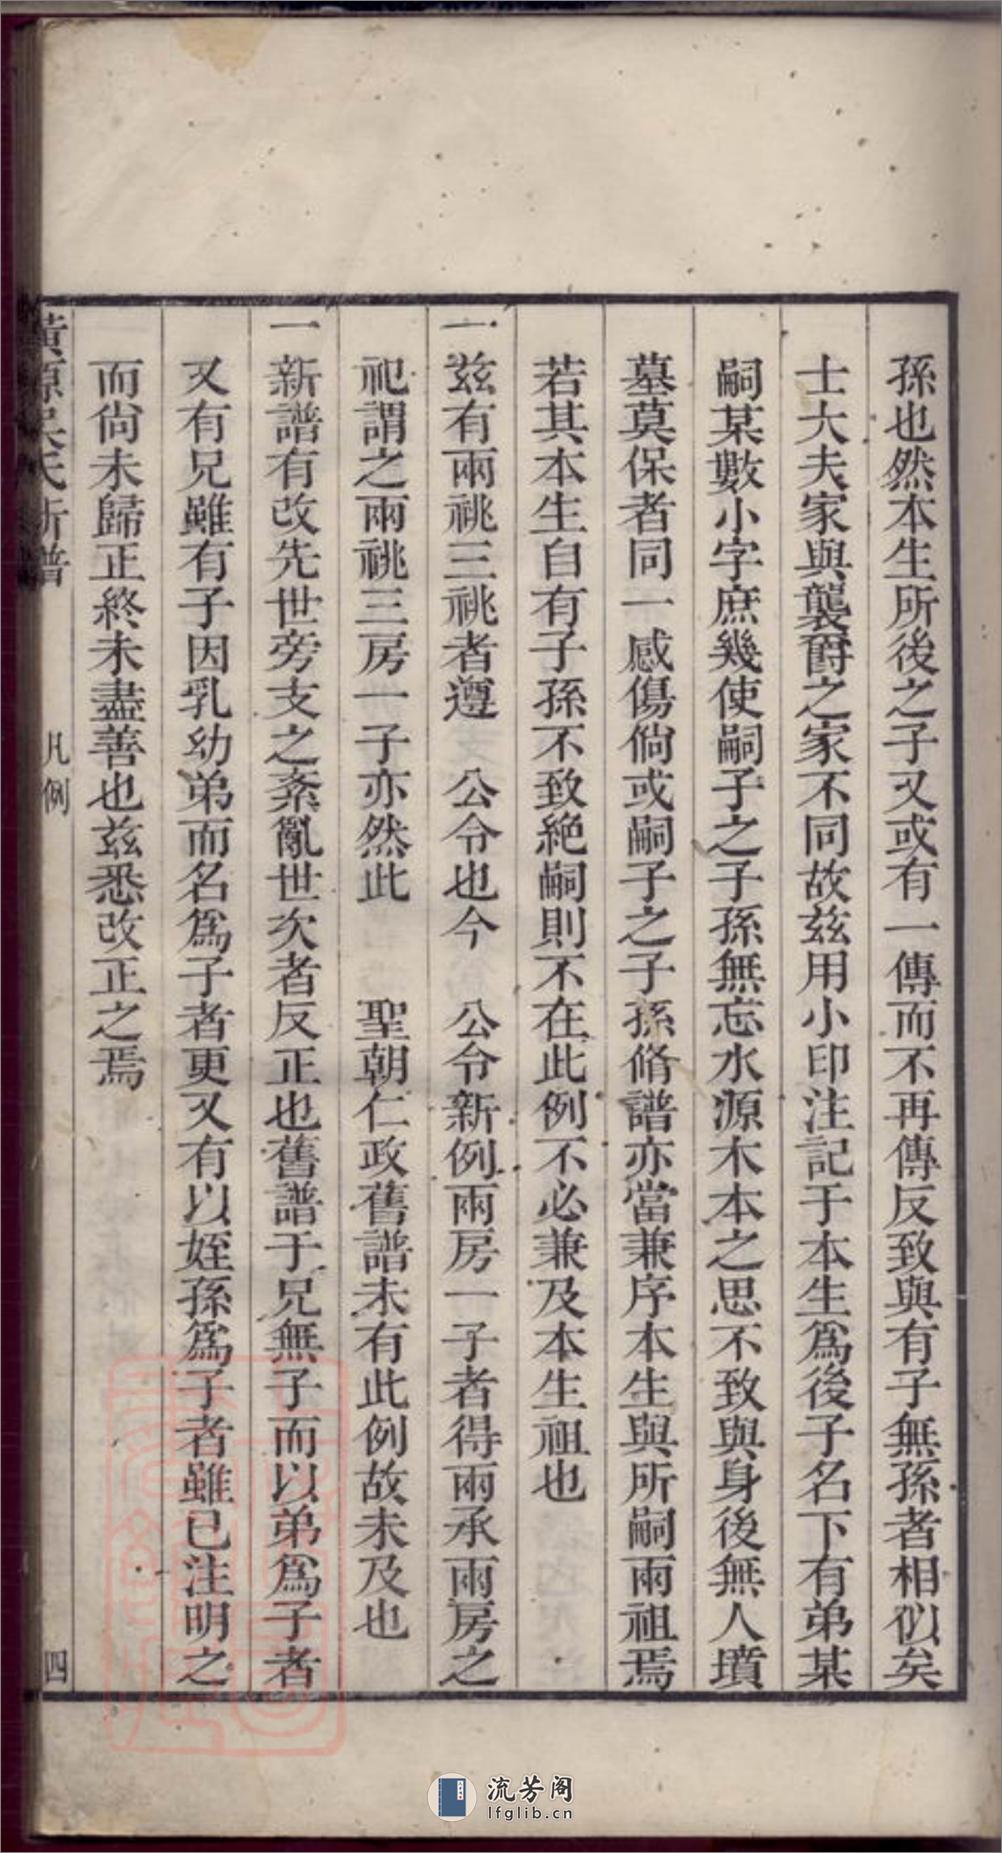 孫也然本生所後之子又或有一傳而不再傳反致與有子無孫者相似矣
士大夫家與襲爵之家不同故茲用小印注記于本生爲後子名下有弟某
嗣某數小字庶幾使嗣子之子孫無忘水源木本之思不致與身後無人墳
墓莫保者同一感傷倘或嗣子之子孫脩譜亦當兼序本生與所嗣兩祖焉
若其本生自有子孫不致絶嗣則不在此例不必兼及本生祖也
一茲有兩祧三祧者遵 公令也今 公令新例兩房一子者得兩承兩房之
祀謂之兩祧三房一子亦然此 聖朝仁政舊譜未有此例故未及也
一新譜有改先世旁支之紊亂世次者反正也舊譜于兄無子而以弟爲子者
又有兄雖有子因乳幼弟而名爲子者更又有以姪孫爲子者雖已注明之
而尙未歸正終未盡善也茲悉改正之焉
黃源吳氏新譜 凡例 四
流芳阁
lfglib.cn